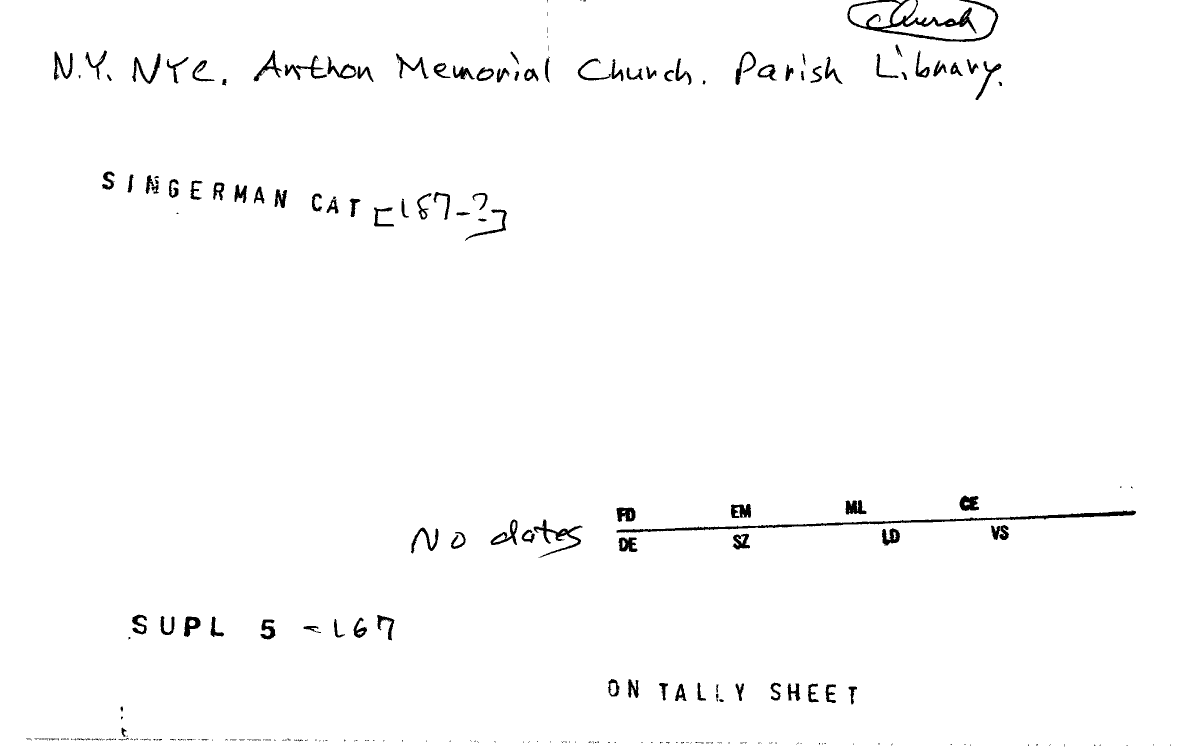 Church
N.Y. NYC. Anthon Memorial Church. Parish Library.
SINGERMAN CAT [187-?]
FD EM ML CE
No dates
DE SZ LD VS
SUPL 5 -167
ON TALLY SHEET